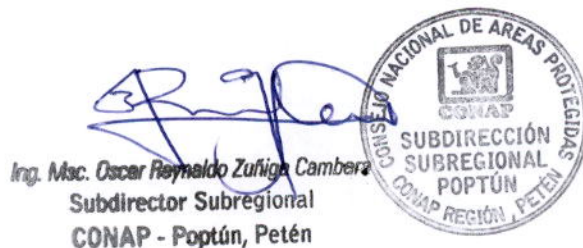 Ing. Msc. Oscar Reynaldo Zuñiga Cambara
Subdirector Subregional
CONAP - Poptún, Petén
CONSEJO NACIONAL DE AREAS PROTEGIDAS
CONAP
SUBDIRECCIÓN
SUBREGIONAL
POPTÚN
CONAP REGIÓN, PETÉN